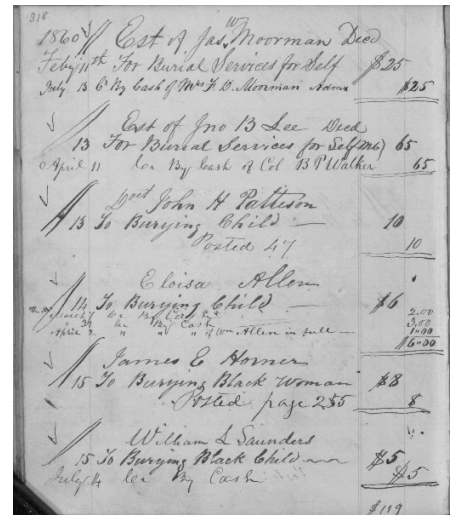 318
1860 Est of Jas. W Moorman Decd
Feby 11th For Burial Services for Self $25
July 13 Cr By Cash of Mrs F. D. Moorman Admx $25
Est of Jno B Lee Decd
13 For Burial Services for Self 65
April 11 Cr By Cash of Col B P Walker 65
Doct John H Patteson
13 To Burying Child — 10
Posted 47 10
Eloisa Allen
14 To Burying Child — $6
March Cr By Cash 2.00
Cr By Cash 3.00
April " " " of Wm Allen in full — 1.00
$6.00
James E Horner
15 To Burying Black Woman $8
Posted page 255 8
William L Saunders
15 To Burying Black Child $5
July 14 Cr By Cash $5
$119